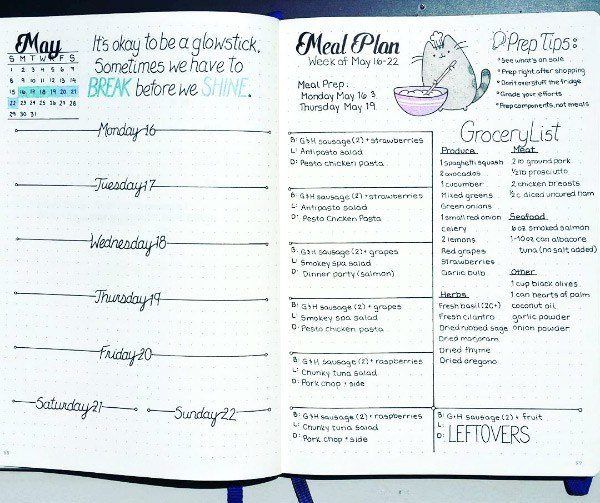 May
S M T W T F S
1 2 3 4 5 6 7
8 9 10 11 12 13 14
15 16 17 18 19 20 21
22 23 24 25 26 27 28
29 30 31
It's okay to be a glowstick.
Sometimes we have to
BREAK before we SHINE.
Monday 16
Tuesday 17
Wednesday 18
Thursday 19
Friday 20
Saturday 21
Sunday 22
Meal Plan
Week of May 16-22
Meal Prep:
Monday May 16 &
Thursday May 19
Prep Tips:
*See what's on sale
*Prep right after shopping
*Don't overstuff the fridge
*Grade your efforts
*Prep components, not meals
B: G&H sausage (2) + strawberries
L: Antipasto salad
D: Pesto chicken pasta
B: G&H sausage (2) + strawberries
L: Antipasto salad
D: Pesto Chicken Pasta
B: G&H sausage (2) + grapes
L: Smokey spa salad
D: Dinner party (salmon)
B: G&H sausage (2) + grapes
L: Smokey spa salad
D: Pesto chicken pasta
B: G&H sausage (2) + raspberries
L: Chunky tuna salad
D: Pork chop + side
B: G&H sausage (2) + raspberries
L: Chunky tuna salad
D: Pork chop + side
Grocery List
Produce
1 spaghetti squash
2 avocados
1 cucumber
Mixed greens
Green onions
1 small red onion
Celery
2 lemons
Red grapes
Strawberries
Garlic bulb
Herbs
Fresh basil (20+)
Fresh cilantro
Dried rubbed sage
Dried marjoram
Dried thyme
Dried oregano
Meat
2 lb ground pork
1/2 lb prosciutto
2 chicken breasts
1/2 c diced uncured ham
Seafood
6 oz smoked salmon
1-10oz can albacore
tuna (no salt added)
Other
1 cup black olives
1 can hearts of palm
coconut oil
garlic powder
onion powder
B: G&H sausage (2) + fruit
L:
D: LEFTOVERS